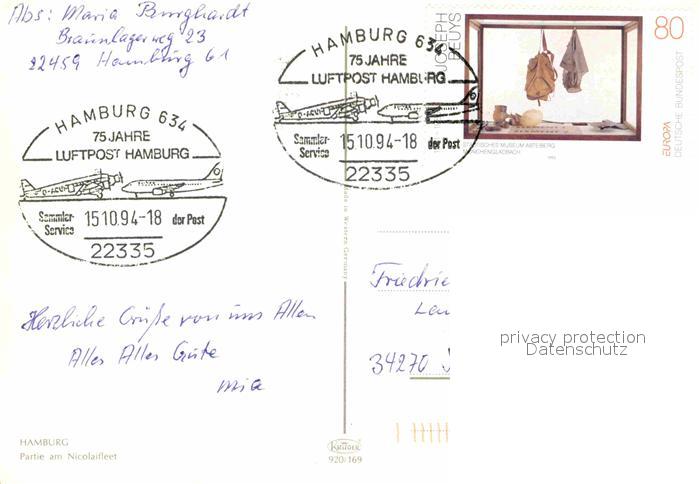 Abs: Maria Burghardt
Braunlagerweg 23
22459 Hamburg 61
HAMBURG 634
75 JAHRE
LUFTPOST HAMBURG
Sammler-
Service
15.10.94-18
der Post
22335
HAMBURG 634
75 JAHRE
LUFTPOST HAMBURG
D-AQUI
Sammler-
Service
15.10.94-18
der Post
22335
JOSEPH
BEUYS
80
STÄDTISCHES MUSEUM ABTEIBERG
MÖNCHENGLADBACH
1993
EUROPA
DEUTSCHE BUNDESPOST
Made in Western Germany
Herzliche Grüße von uns Allen
Alles Alles Gute
Mia
Friedrie
34270
privacy protection
Datenschutz
HAMBURG
Partie am Nicolaifleet
KRÜGER
920/169